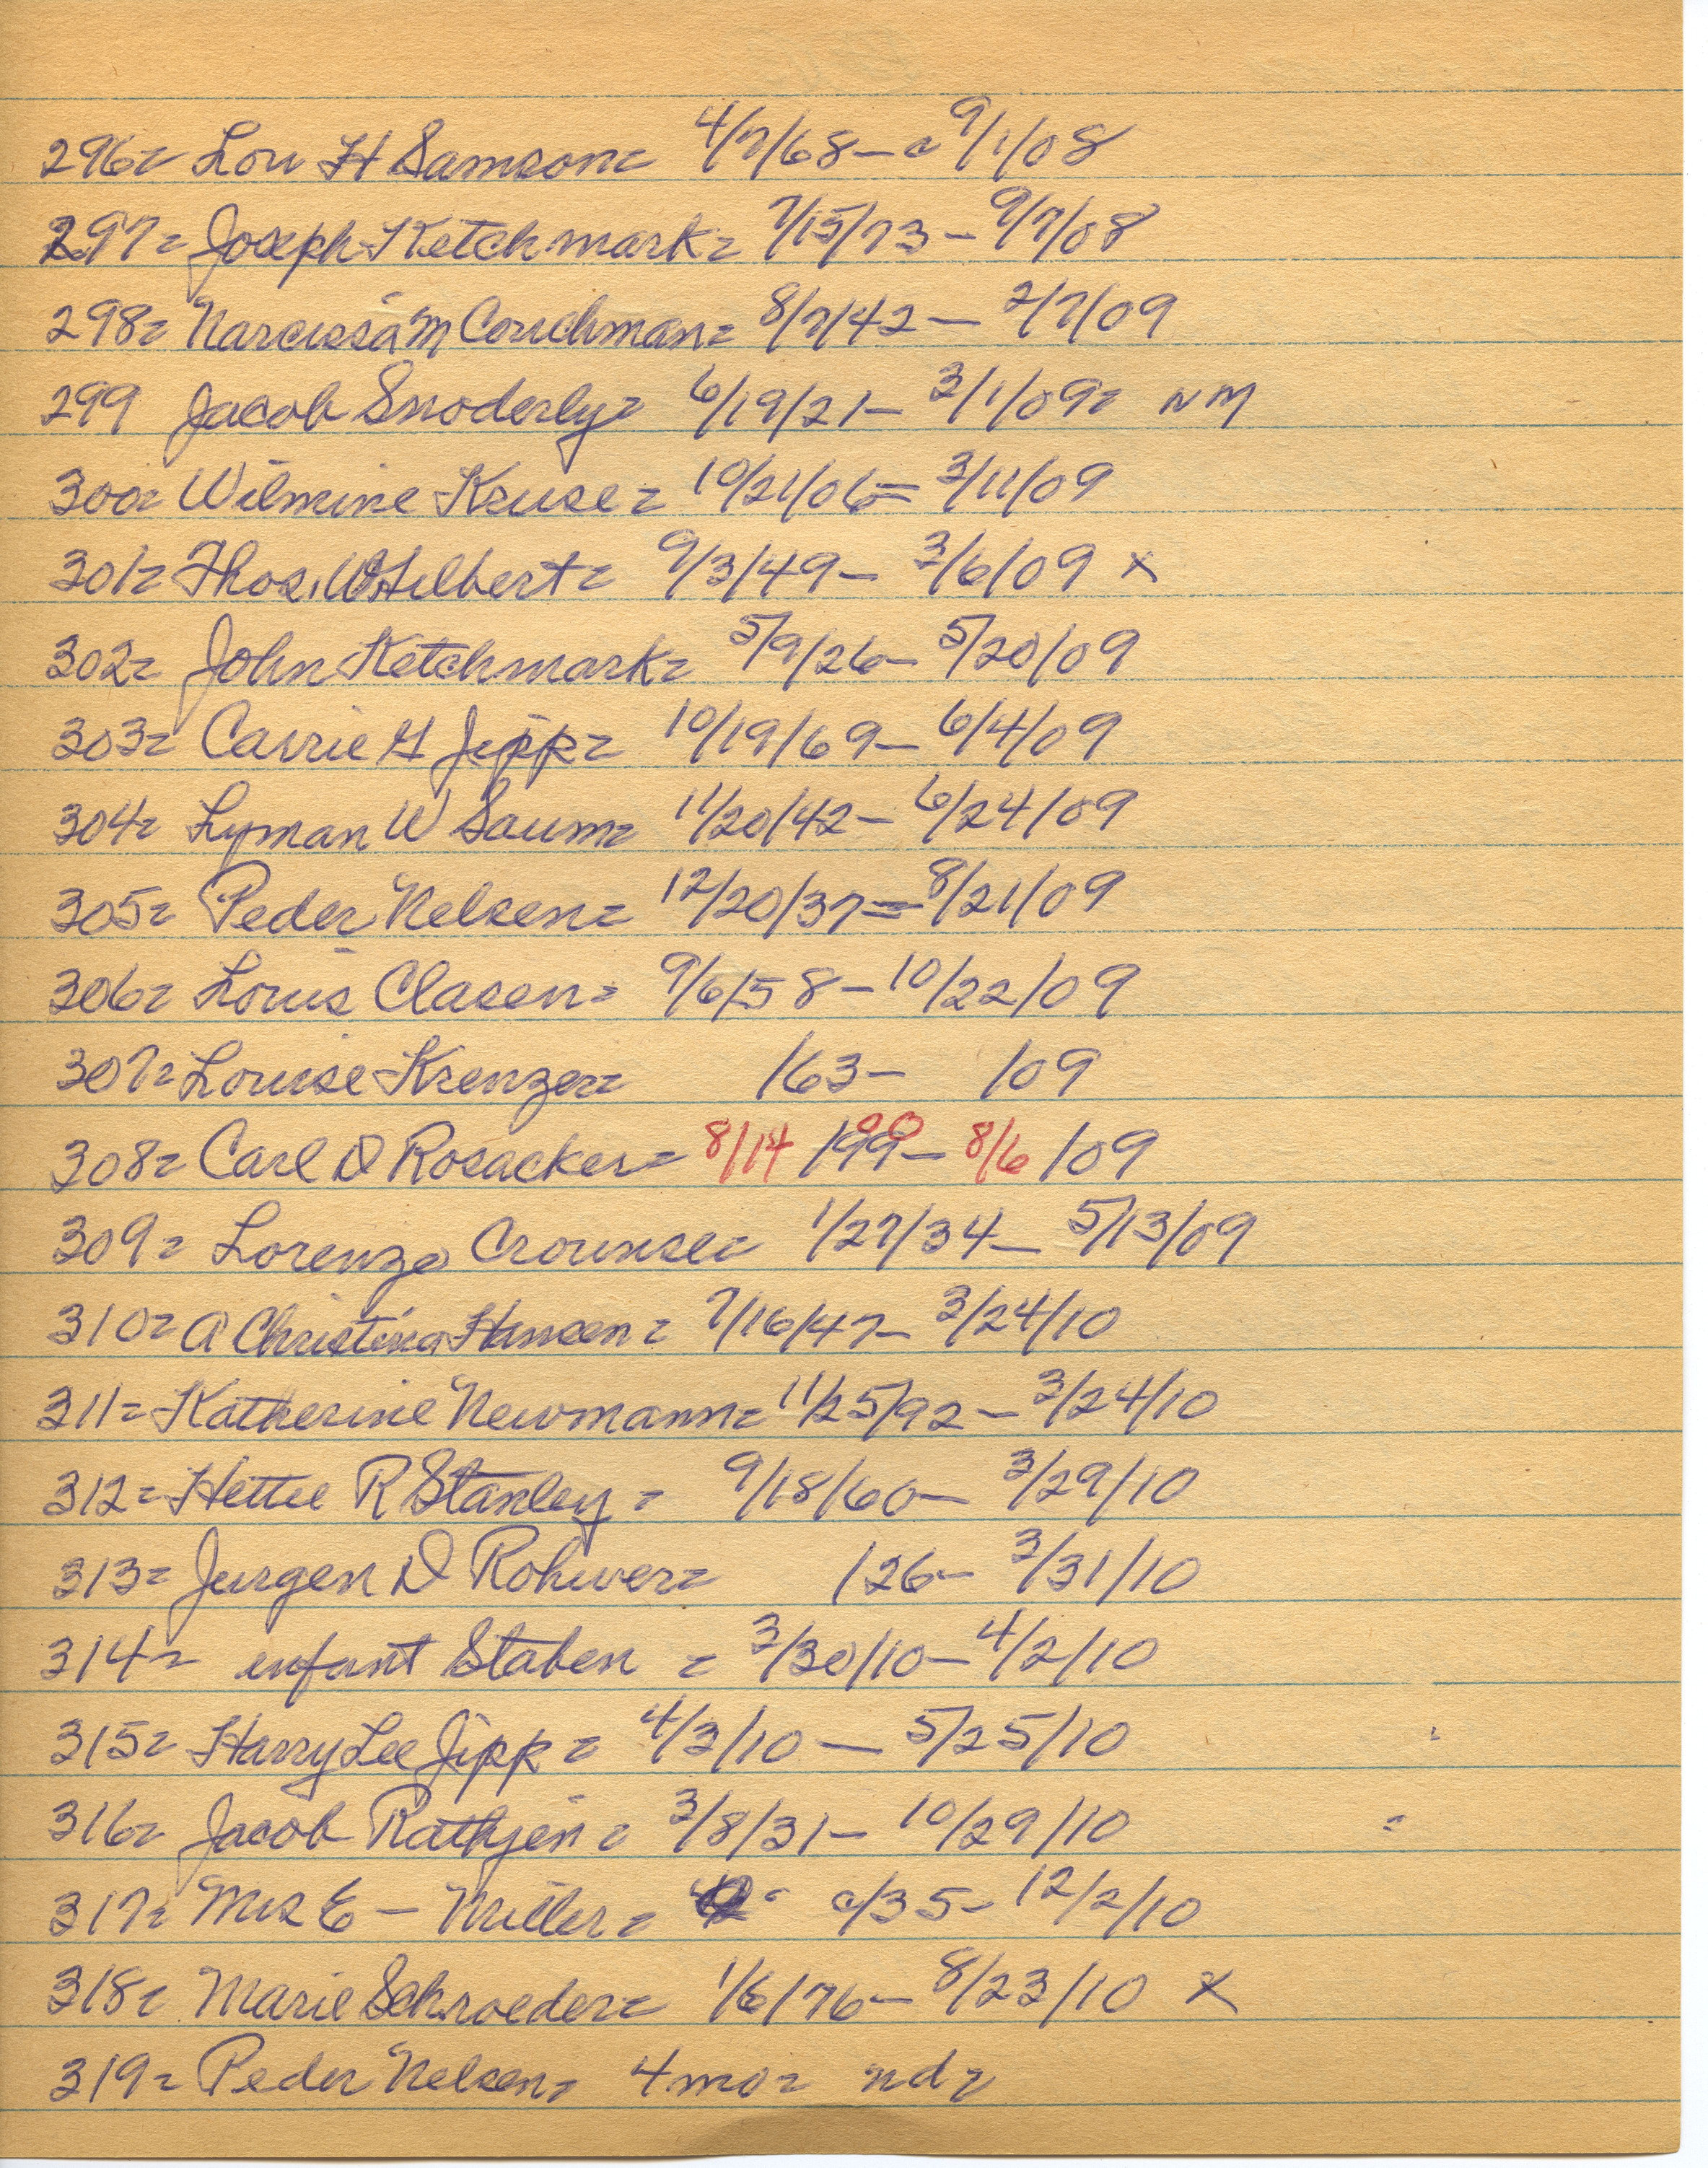 296= Lou H Samson= 4/7/68 - c 9/1/08
297= Joseph Ketchmark= 7/15/73 - 9/7/08
298= Narcissa M Couchman= 8/7/42 - 2/7/09
299 Jacob Snoderly= 6/19/21 - 3/1/09= NM
300= Wilmine Kruse= 10/21/06= 3/11/09
301= Thos. W Hilbert= 9/3/49 - 3/6/09 x
302= John Ketchmark= 5/9/26 - 5/20/09
303= Carrie G Jipp= 10/19/69 - 6/4/09
304= Lyman W Saum= 11/20/42 - 6/24/09
305= Peder Nelsen= 12/20/37= 8/21/09
306= Louis Clasen= 9/6/58 - 10/22/09
307= Louise Krenzer= /63 - /09
308= Carl D Rosacker= 8/14 /99 00 - 8/6 /09
309= Lorenzo Crounse= 1/27/34 - 5/13/09
310= A Christina Hansen= 7/16/47 - 3/24/10
311= Katherine Newmann= 11/25/92 - 3/24/10
312= Hettie R Stanley= 9/18/60 - 3/29/10
313= Jurgen D Rohwer= /26 - 3/31/10
314= infant Staben = 3/30/10 - 4/2/10
315= Harry Lee Jipp= 4/3/10 - 5/25/10
316= Jacob Rathjen= 3/8/31 - 10/29/10
317= Mrs E - Miller= c/35 - 12/2/10
318= Marie Schroeder= 1/6/76 - 8/23/10 x
319= Peder Nelsen= 4mo= nd=